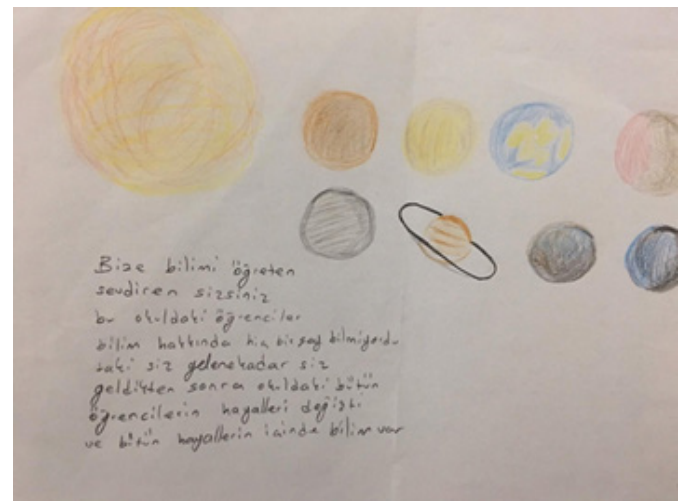 Bize bilimi öğreten
sevdiren sizsiniz
bu okuldaki öğrenciler
bilim hakkında hiç birşey bilmiyordu
taki siz gelenekadar siz
geldikten sonra okuldaki bütün
öğrencilerin hayalleri değişti
ve bütün hayallerin içinde bilim var